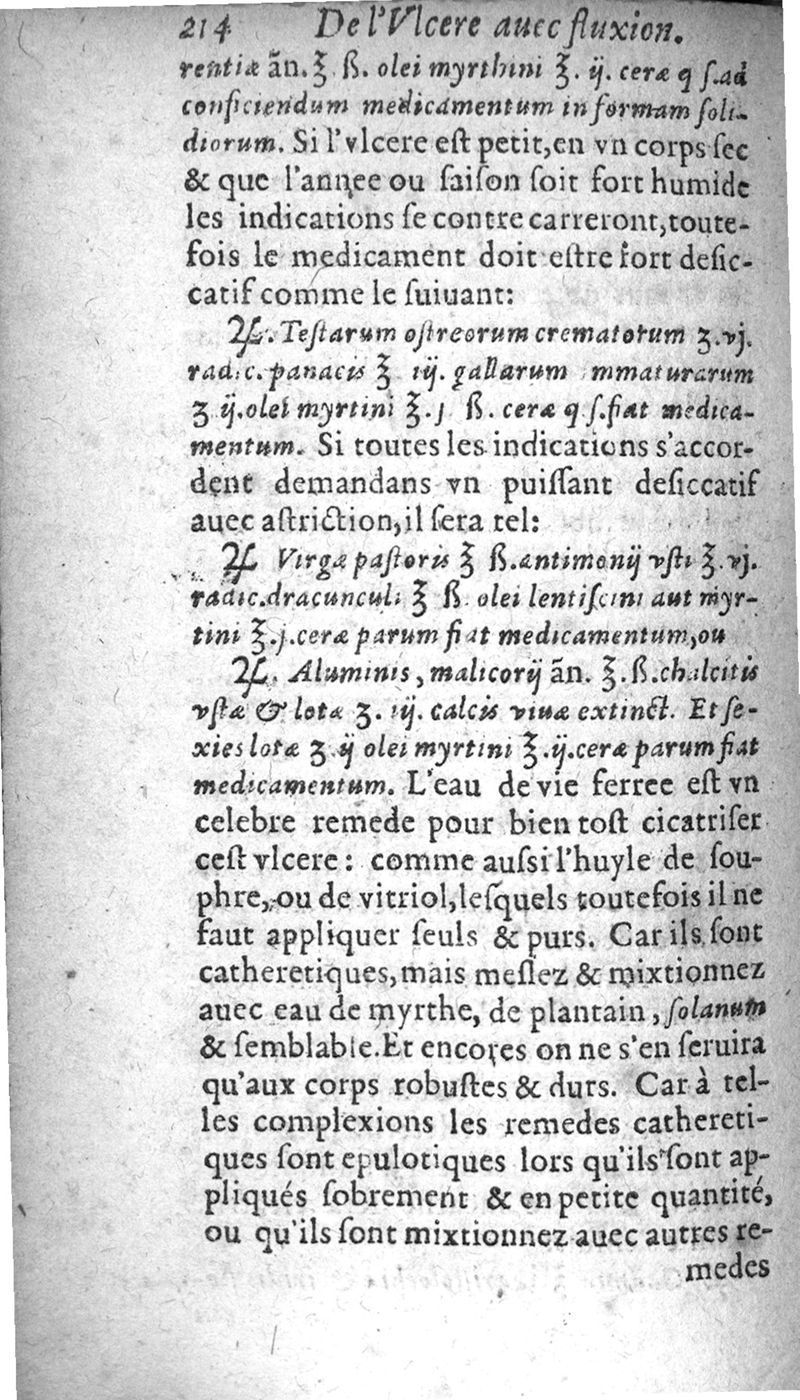 214 De l'Vlcere auec fluxion.
rentiæ ãn.℥. ß. olei myrthini ℥. ij. ceræ q ſ.ad
conficiendum medicamentum in formam ſoli-
diorum. Si l'vlcere eſt petit,en vn corps ſec
& que l'annee ou ſaiſon ſoit fort humide
les indications ſe contrecarreront,toute-
fois le medicament doit eſtre fort deſic-
catif comme le ſuiuant:
♃. Teſtarum oſtreorum crematorum ʒ.vj.
radic.panacis ℥ iij. gallarum immaturarum
ʒ ij.olei myrtini ℥.j ß. ceræ q ſ.fiat medica-
mentum. Si toutes les indications s'accor-
dent demandans vn puiſſant deſiccatif
auec aſtriction,il ſera tel:
♃ Virgæ paſtoris ℥ ß.antimonij vſti ℥.vj.
radic.dracunculi ℥ ß olei lentiſcini aut myr-
tini ℥.j.ceræ parum fiat medicamentum,ou
♃. Aluminis, malicorij ãn. ℥.ß.chalcitis
vſtæ & lotæ ʒ. iij. calcis viuæ extinct. Et ſe-
xies lotæ ʒ ij olei myrtini ℥.ij.ceræ parum fiat
medicamentum. L'eau de vie ferree eſt vn
celebre remede pour bien toſt cicatriſer
ceſt vlcere: comme auſsi l'huyle de ſou-
phre, ou de vitriol,leſquels toutefois il ne
faut appliquer ſeuls & purs. Car ils ſont
catheretiques,mais meſlez & mixtionnez
auec eau de myrthe, de plantain, ſolanum
& ſemblable.Et encores on ne s'en ſeruira
qu'aux corps robuſtes & durs. Car à tel-
les complexions les remedes cathereti-
ques ſont epulotiques lors qu'ils ſont ap-
pliqués ſobrement & en petite quantité,
ou qu'ils ſont mixtionnez auec autres re-
medes